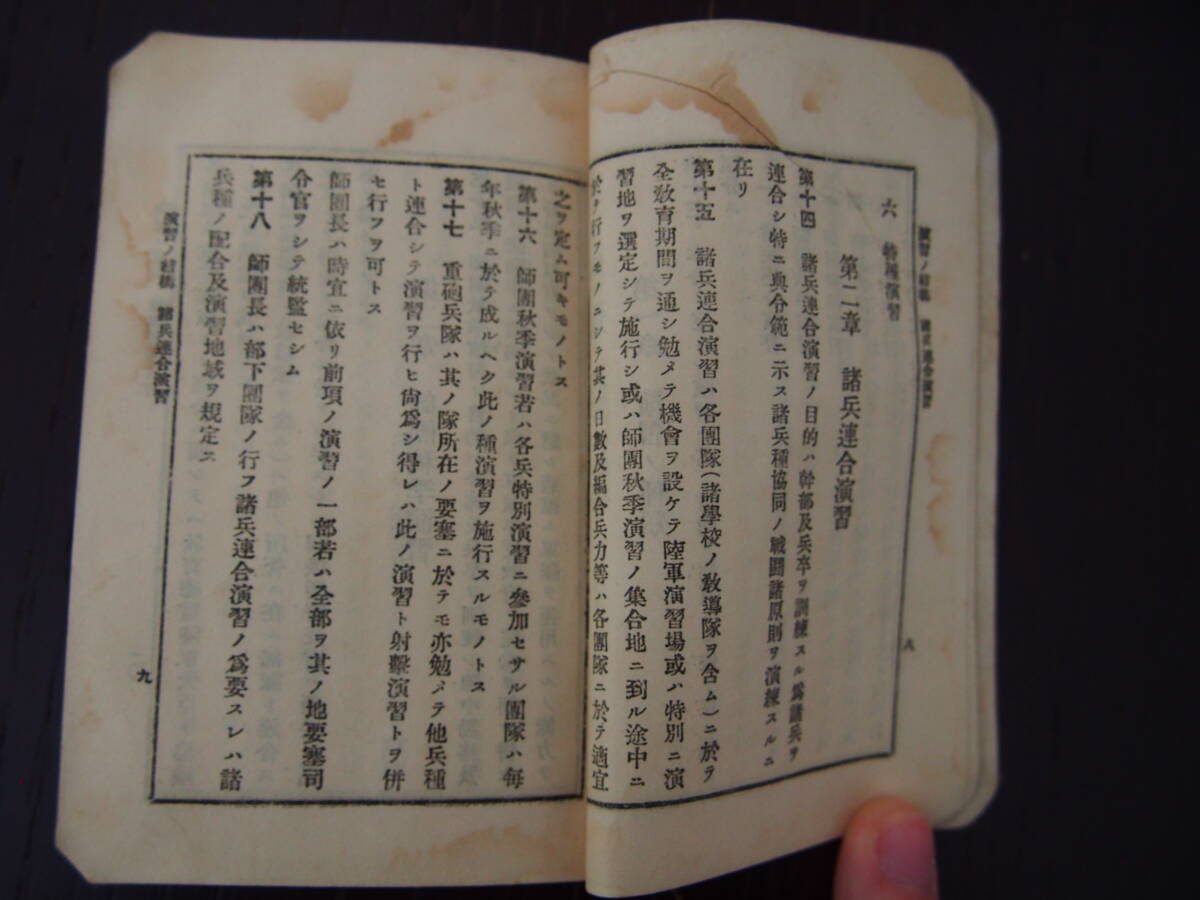 演習ノ結構 諸兵連合演習
八
六 特種演習
第二章 諸兵連合演習
第十四 諸兵連合演習ノ目的ハ幹部及兵卒ヲ訓練スル爲諸兵ヲ
連合シ特ニ典令範ニ示ス諸兵種協同ノ戰鬪諸原則ヲ演練スルニ
在リ
第十五 諸兵連合演習ハ各團隊(諸學校ノ敎導隊ヲ含ム)ニ於テ
全敎育期間ヲ通シ勉メテ機會ヲ設ケテ陸軍演習場或ハ特別ニ演
習地ヲ選定シテ施行シ或ハ師團秋季演習ノ集合地ニ到ル途中ニ
於テ行フモノニシテ其ノ日數及編合兵力等ハ各團隊ニ於テ適宜
之ヲ定ム可キモノトス
第十六 師團秋季演習若ハ各兵特別演習ニ參加セサル團隊ハ每
年秋季ニ於テ成ルヘク此ノ種演習ヲ施行スルモノトス
第十七 重砲兵隊ハ其ノ隊所在ノ要塞ニ於テモ亦勉メテ他兵種
ト連合シテ演習ヲ行ヒ尙爲シ得レハ此ノ演習ト射擊演習トヲ併
セ行フヲ可トス
師團長ハ時宜ニ依リ前項ノ演習ノ一部若ハ全部ヲ其ノ地要塞司
令官ヲシテ統監セシム
第十八 師團長ハ部下團隊ノ行フ諸兵連合演習ノ爲要スレハ諸
兵種ノ配合及演習地域ヲ規定ス
演習ノ結構 諸兵連合演習
九